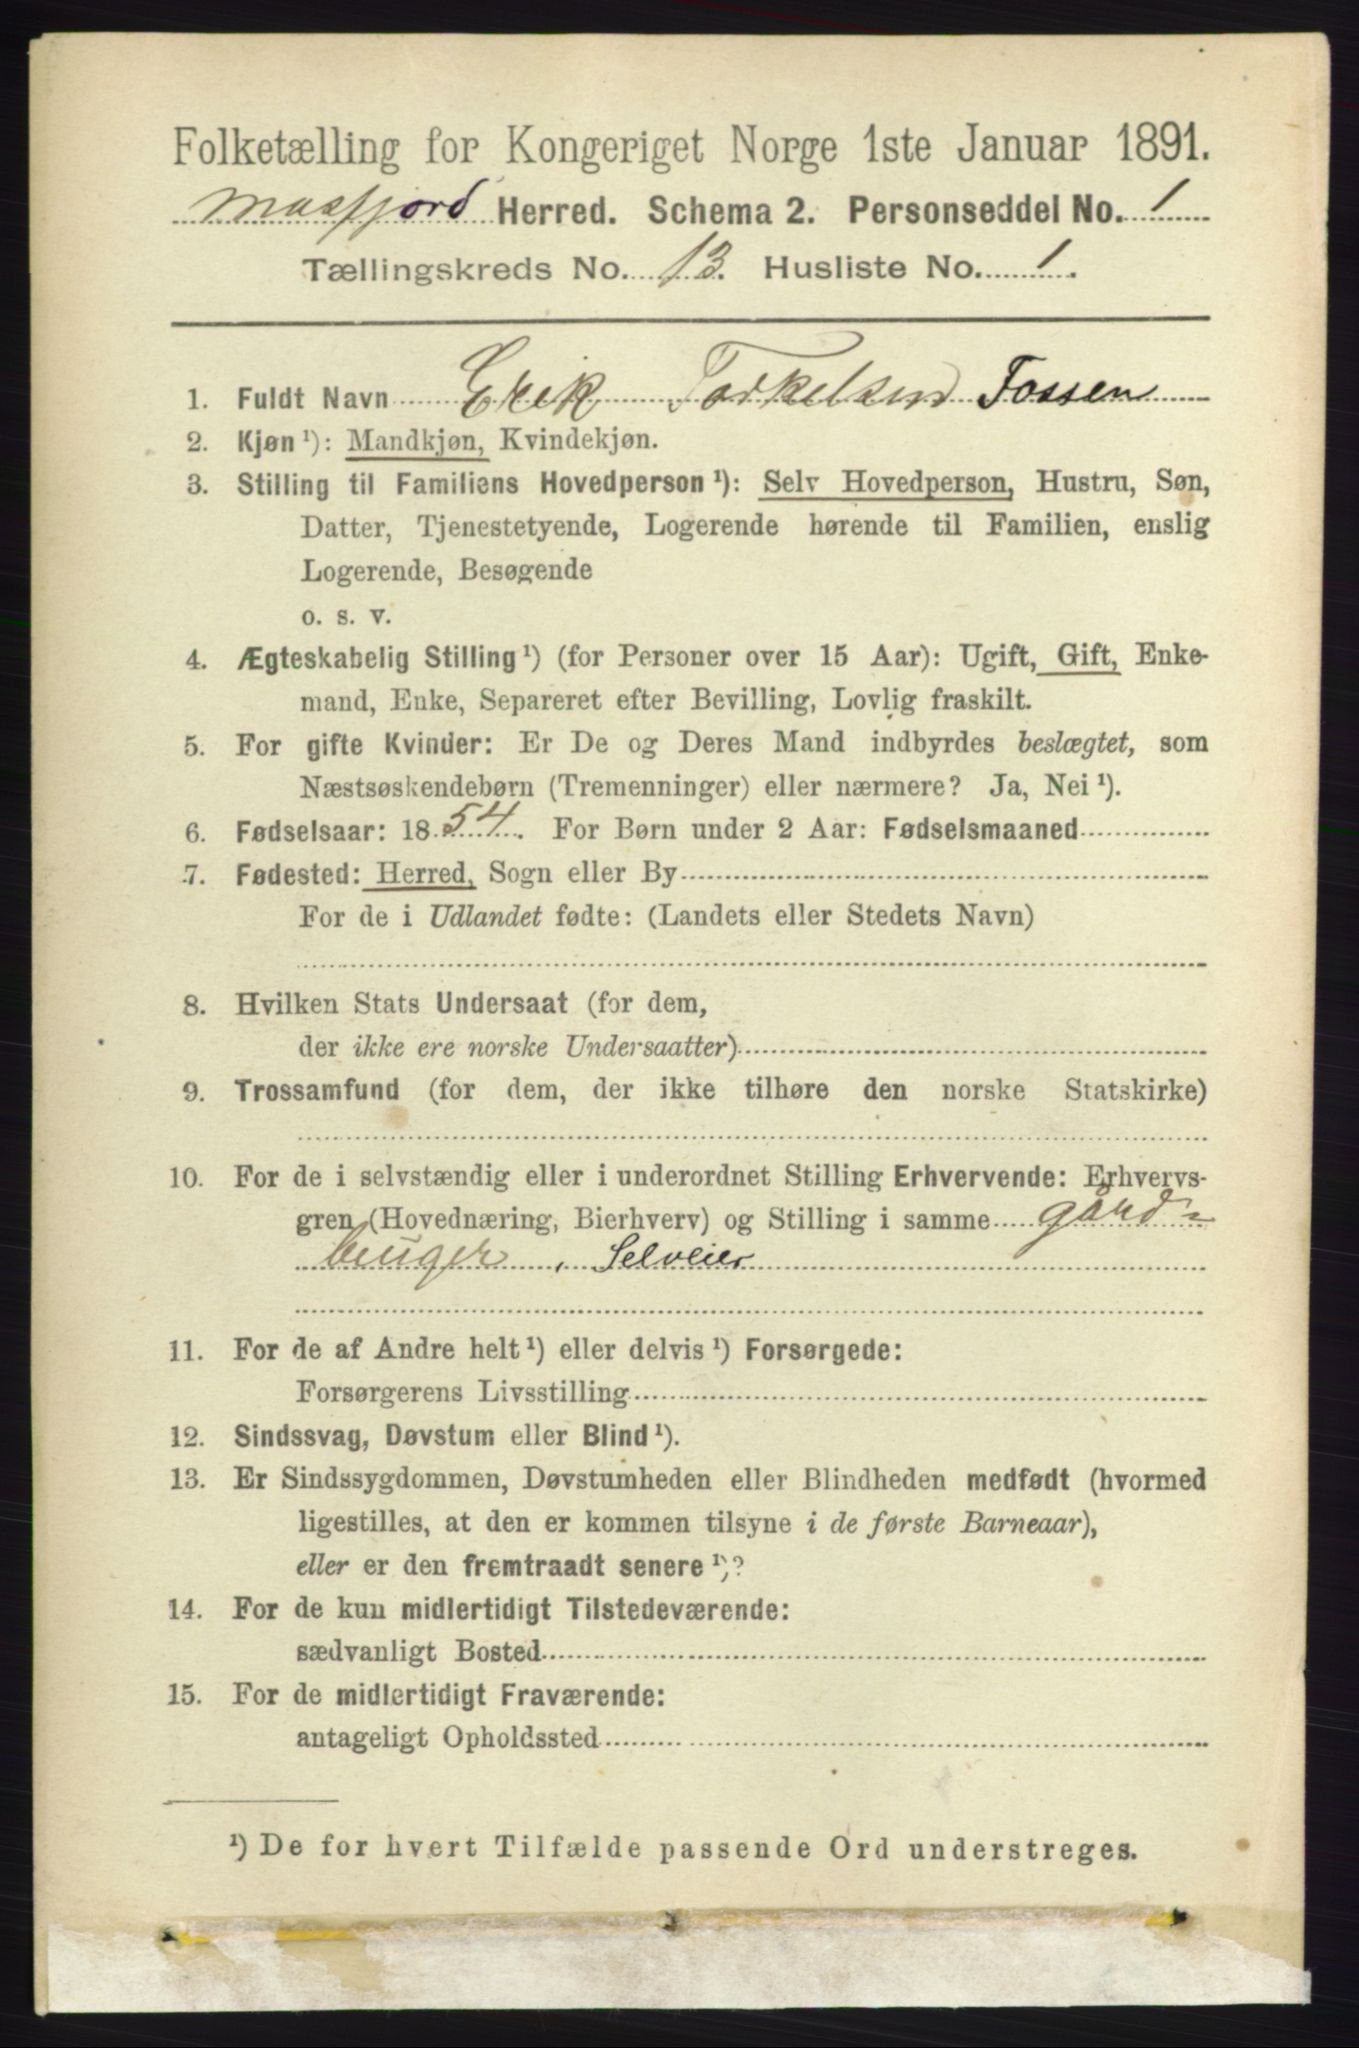 Folketælling for Kongeriget Norge 1ste Januar 1891.
Masfjord Herred. Schema 2. Personseddel No. 1
Tællingskreds No. 13. Husliste No. 1.
1. Fuldt Navn Erik Torkelsen Fossen
2. Kjøn ¹): Mandkjøn, Kvindekjøn.
3. Stilling til Familiens Hovedperson ¹): Selv Hovedperson, Hustru, Søn,
Datter, Tjenestetyende, Logerende hørende til Familien, enslig
Logerende, Besøgende
o. s. v.
4. Ægteskabelig Stilling ¹) (for Personer over 15 Aar): Ugift, Gift, Enke-
mand, Enke, Separeret efter Bevilling, Lovlig fraskilt.
5. For gifte Kvinder: Er De og Deres Mand indbyrdes beslægtet, som
Næstsøskendebørn (Tremenninger) eller nærmere? Ja, Nei ¹).
6. Fødselsaar: 1854. For Børn under 2 Aar: Fødselsmaaned
7. Fødested: Herred, Sogn eller By
For de i Udlandet fødte: (Landets eller Stedets Navn)
8. Hvilken Stats Undersaat (for dem,
der ikke ere norske Undersaatter)
9. Trossamfund (for dem, der ikke tilhøre den norske Statskirke)
10. For de i selvstændig eller i underordnet Stilling Erhvervende: Erhvervs-
gren (Hovednæring, Bierhverv) og Stilling i samme gård-
bruger, Selveier
11. For de af Andre helt ¹) eller delvis ¹) Forsørgede:
Forsørgerens Livsstilling
12. Sindssvag, Døvstum eller Blind ¹).
13. Er Sindssygdommen, Døvstumheden eller Blindheden medfødt (hvormed
ligestilles, at den er kommen tilsyne i de første Barneaar),
eller er den fremtraadt senere ¹)?
14. For de kun midlertidigt Tilstedeværende:
sædvanligt Bosted
15. For de midlertidigt Fraværende:
antageligt Opholdssted
¹) De for hvert Tilfælde passende Ord understreges.